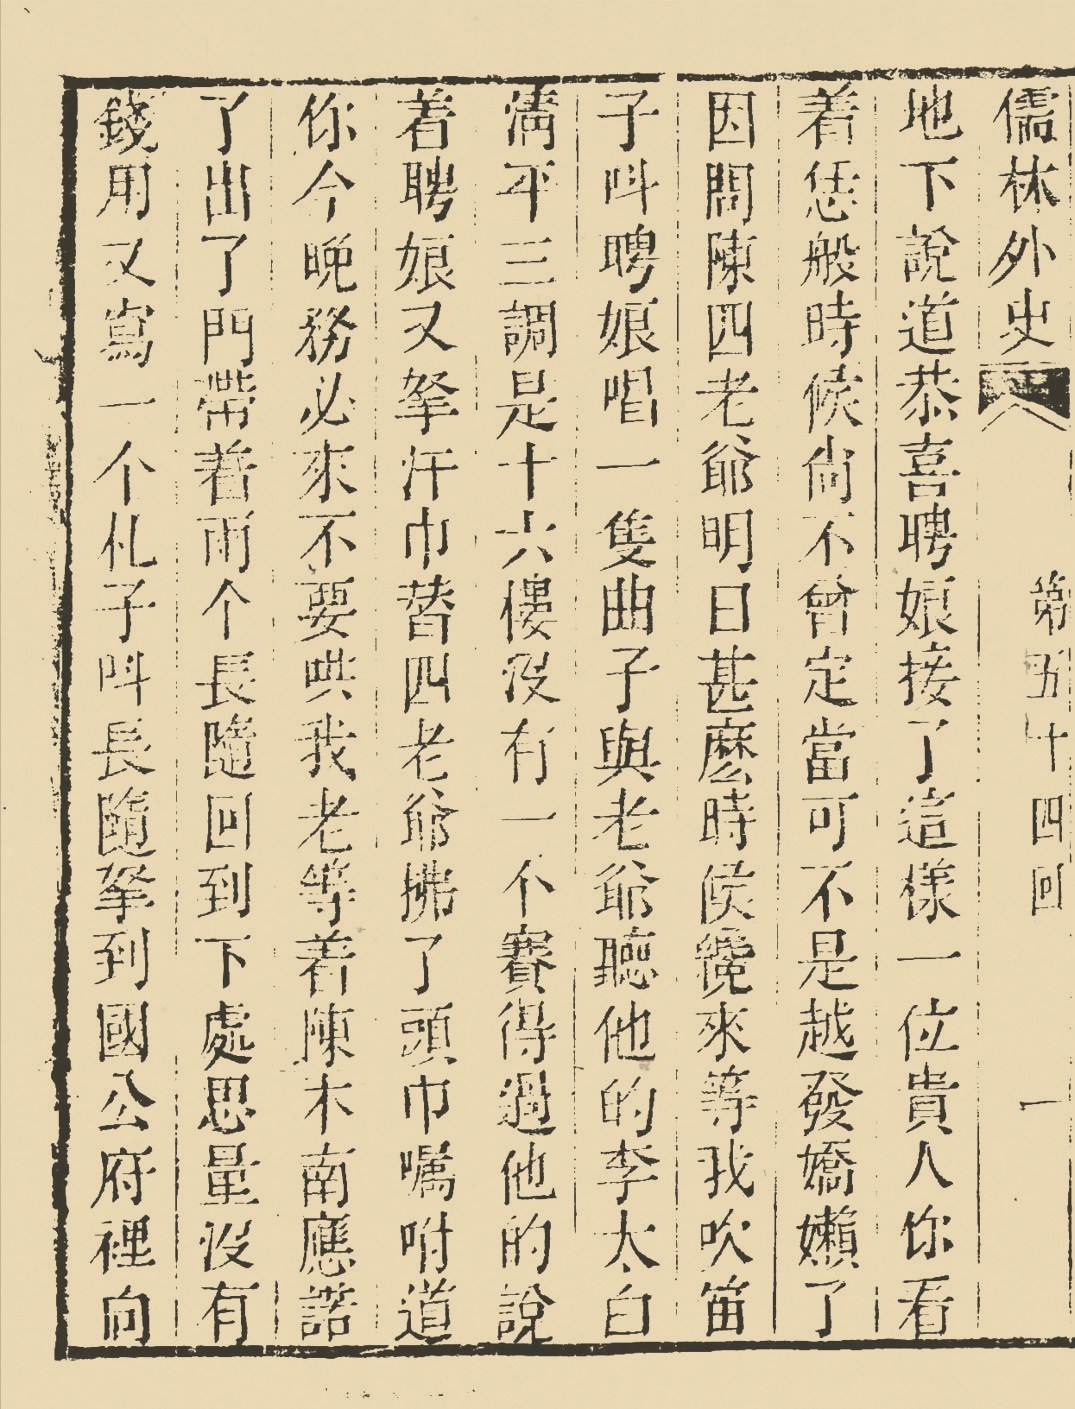 儒林外史 第五十四回 一
地下說道恭喜聘娘接了這樣一位貴人你看
着恁般時候尙不曾定當可不是越發嬌嬾了
因問陳四老爺明日甚麽時侯纔來等我吹笛
子呌聘娘唱一隻曲子與老爺聽他的李太白
淸平三調是十六樓沒有一个賽得過他的說
着聘娘又拏汗巾替四老爺拂了頭巾囑咐道
你今晚務必來不要哄我老等着陳木南應諾
了出了門帶着兩个長隨回到下處思量沒有
錢用又寫一个札子呌長隨拏到國公府裡向